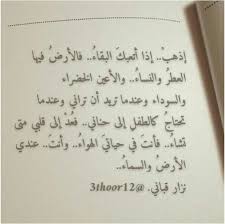 إذهبْ.. إذا أتعبكَ البقاءُ.. فالأرضُ فيها
العطرُ والنساءُ.. والأعين الخضراء
والسوداء وعندما تريد أن تراني وعندما
تحتاجُ كالطفلِ إلى حناني.. فعُدْ إلى قلبي متى
تشاءُ.. فأنتَ في حياتيَ الهواءُ.. وأنتَ.. عندي
الأرضُ والسماءُ..
نزار قباني. @3thoor12